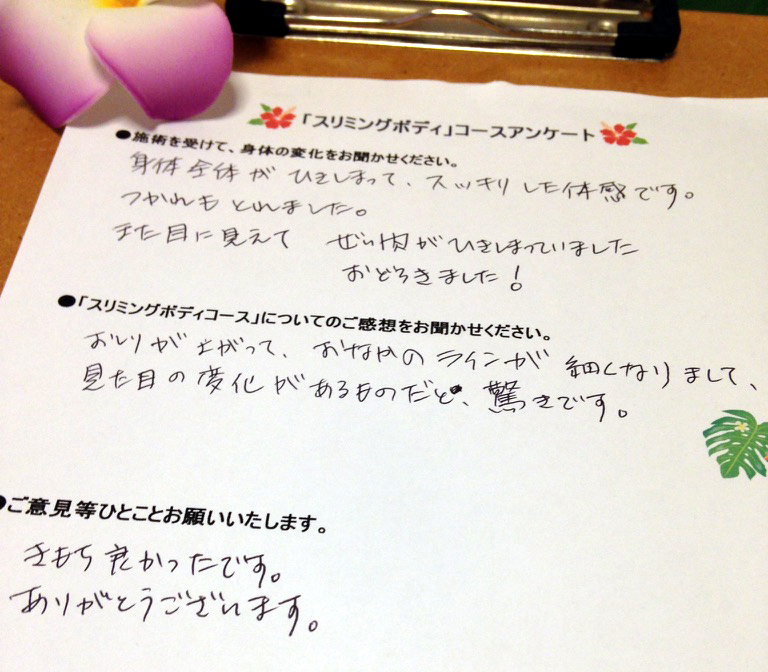 「スリミングボディ」コースアンケート
●施術を受けて、身体の変化をお聞かせください。
身体全体がひきしまって、スッキリした体感です。
つかれもとれました。
また目に見えて ぜい肉がひきしまっていました
おどろきました!
●「スリミングボディコース」についてのご感想をお聞かせください。
おしりが上がって、おなかのラインが細くなりまして、
見た目の変化があるものだと、驚きです。
●ご意見等ひとことお願いいたします。
きもち良かったです。
ありがとうございます。